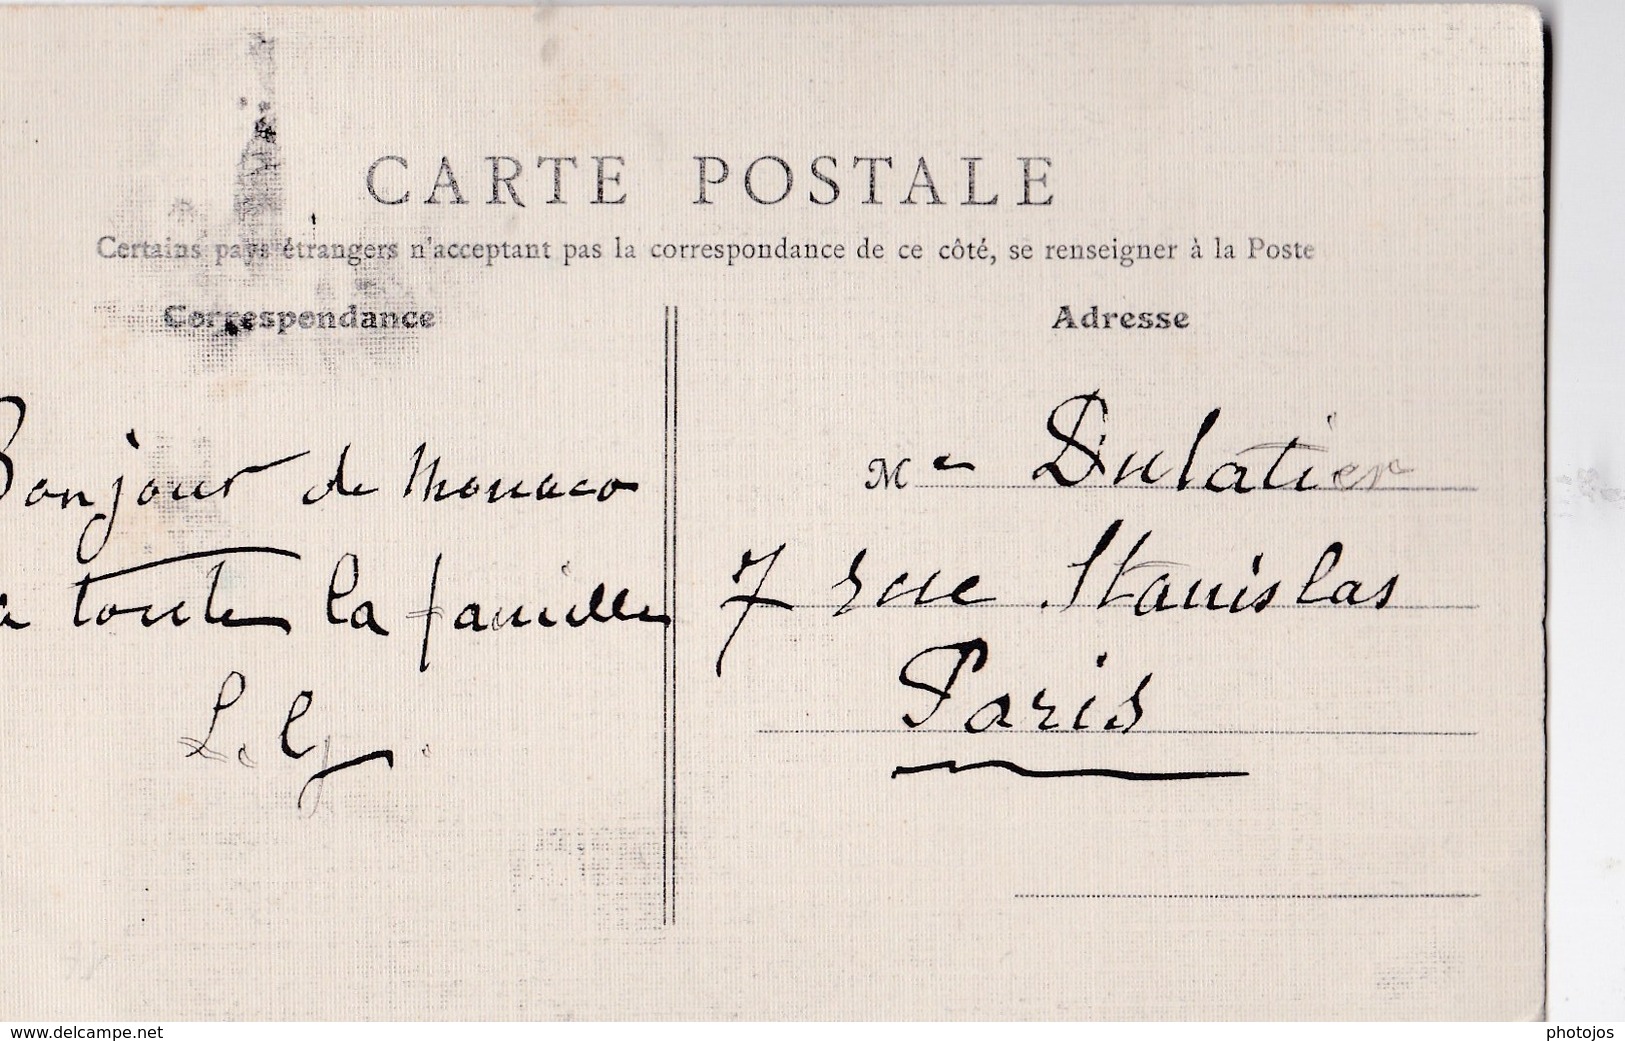 CARTE POSTALE
Certains pays étrangers n'acceptant pas la correspondance de ce côté, se renseigner à la Poste
Correspondance
Bonjour de Monaco
a toute la famille
L. G.
Adresse
Me Dulatier
7 rue Stanislas
Paris
www.delcampe.net
photojos